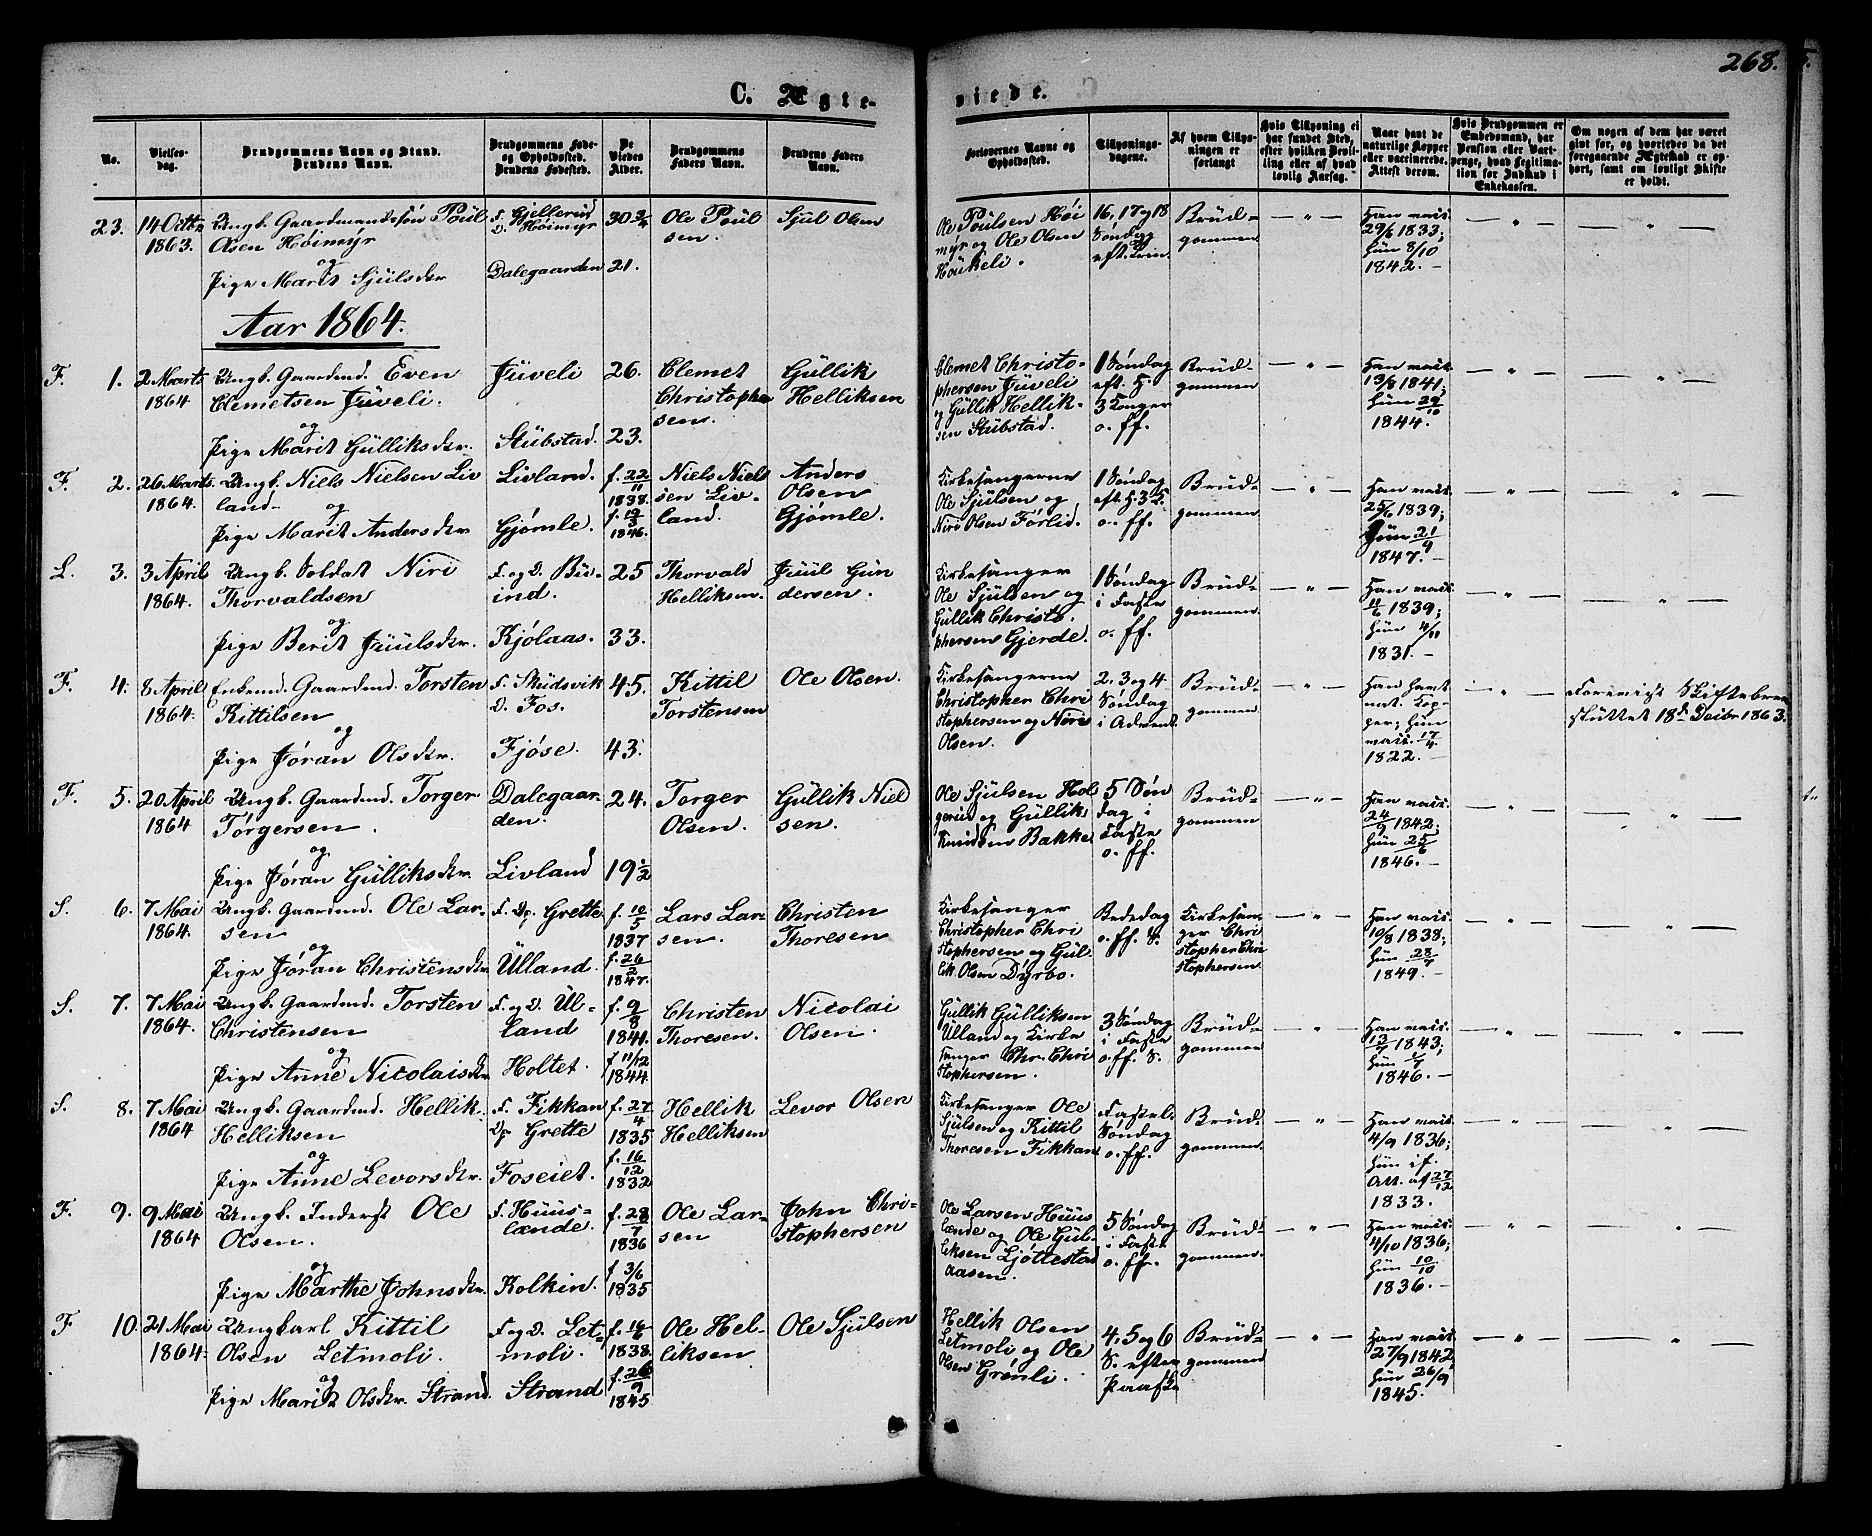 268.
C. Ægte-
viede.
No.
Vielses-
dag.
Brudgommens Navn og Stand.
Brudens Navn.
Brudgommens Føde-
og Opholdssted.
Brudens Fødested.
De
Viedes
Alder.
Brudgommens
Faders Navn.
Brudens Faders
Navn.
Forlovernes Navne og
Opholdssted.
Tillysnings-
dagene.
Af hvem Tillys-
ningen er
forlangt
Hvis Tillysning ei
har fundet Sted,
efter hvilken Bevil-
ling eller af hvad
lovlig Aarsag.
Naar havt de
naturlige Kopper
eller vaccinerede.
Attest derom.
Hvis Brudgommen er
Embedsmand, har
Pension eller Vart-
penge, hvad Legitima-
tion for Indskud i
Enkekassen.
Om nogen af dem har været
gift før, og hvorledes da det
foregaaende Ægteskab er op-
hørt, samt om lovligt Skifte
er holdt.
23. 14 Octbr
1863.
Ungk. Gaardmandssøn Poul
Olsen Höimyr
og
Pige Marit Sjulsdtr.
F. Gjellerud
O. Höimyr
Dalegaarden
30 3/4
21.
Ole Poul
sen.
Sjul Olsen
Ole Poulsen Höi
myr og Ole Olsen
Haukeli.
16, 17 og 18
Söndag
eft. Trin.
Brud-
gommen
Han vacc.
29/6 1833;
hun 8/10
1842.
Aar 1864.
F. 1. 2 Marts
1864.
Ungk. Gaardmd. Even
Clemetsen Juveli.
og
Pige Marit Gulliksdtr.
Juveli
Stubstad.
26.
23.
Clemet
Christopher
sen.
Gullik
Helliksen
Clemet Christo-
phersen Juveli
og Gullik Hellik-
sen Stubstad.
1 Söndag
eft. H.
3 Konger
o. ff.
Brud-
gommen
Han vacc.
13/8 1841;
hun 29/10
1844.
F. 2. 26 Marts
1864.
Ungk. Niels Nielsen Liv
land.
og
Pige Marit Andersdtr.
Livland.
Gjömle.
f. 22/11
1838.
f. 19/3
1846.
Niels Niels
sen Liv-
land.
Anders
Olsen
Gjömle.
Kirkesangerne
Ole Sjulsen og
Niri Olsen Forlid.
1 Söndag
eft. H. 3 K.
o. ff.
Brud-
gommen
Han vacc.
25/6 1839;
Hun 21/9
1847.
L. 3. 3 April
1864.
Ungk. Soldat Niri
Thorvaldsen
og
Pige Berit Juulsdtr.
F. og O. Bu-
ind.
Kjölaas.
25
33.
Thorvald
Helliksen.
Juul Gun
dersen.
Kirkesanger
Ole Sjulsen og
Gullik Christo-
phersen Gjerde.
1 Söndag
i Faste
o. ff.
Brud-
gommen.
Han vacc.
11/6 1839;
hun 4/11
1831.
F. 4. 8 April
1864.
Enkemd. Gaardmd. Torsten
Kittilsen
og
Pige Jöran Olsdtr.
F. Skudsvik
O. Fos.
Fjöse.
45.
43.
Kittil
Torstensen
Ole Olsen.
Kirkesangerne
Christopher Chri
stophersen og Niri
Olsen.
2. 3 og 4
Söndag
i Advent
Brud-
gommen.
Han havt
nat. Kop-
per; hun
vacc. 17/4
1822.
Forevist Skiftebrev
sluttet 18d Decbr 1863.
F. 5. 20 April
1864
Ungk. Gaardmd. Torger
Torgersen.
og
Pige Jöran Gulliksdtr.
Dalegaar-
den.
Livland
24.
19 1/2
Torger
Olsen.
Gullik Niel
sen.
Ole Sjulsen Hol
gerud og Gullik
Knudsen Bakke
5 Sön
dag i
Faste
o. ff.
Brud-
gommen
Han vacc.
24/9 1842;
hun 25/6
1846.
S. 6. 7 Mai
1864.
Ungk. Gaardmd. Ole Lar-
sen
og
Pige Jöran Christensdtr.
F. Op. Grette
Ulland.
f. 10/5
1837
f. 26/2
1847.
Lars Lar-
sen.
Christen
Thoresen
Kirkesanger
Christopher Chri
stophersen og Gul-
lik Olsen Dyrbo.
Bededag
o. ff. S.
Kirkesan-
ger Chri
stopher Chri
stophersen.
Han vacc.
10/8 1838;
hun 28/7
1849.
S. 7. 7 Mai
1864.
Ungk. Gaardmd. Torsten
Christensen
og
Pige Anne Nicolaisdtr.
F. og O. Ul-
land
Holtet.
f. 9/8
1841.
f 11/12
1844
Christen
Thoresen.
Nicolai
Olsen.
Gullik Gulliksen
Ulland og Kirke
sanger Chr. Chri
stophersen.
3 Söndag
i Faste
o. ff. S.
Brud-
gommen
Han vacc.
13/7 1843;
hun 1/7
1846.
S. 8. 7 Mai
1864
Ungk. Gaardmd. Hellik
Helliksen
og
Pige Anne Levorsdtr.
F. Fikkan
Op Grette
Foseiet.
f. 27/4
1835
f. 16/12
1832
Hellik
Helliksen
Levor Olsen
Kirkesanger Ole
Sjulsen og Kittil
Thoresen Fikkan
Fastel.
Söndag
o. ff.
Brud-
gommen.
Han vacc.
4/9 1836;
hun if.
Att. af 27/12
1833.
F. 9. 9 Mai
1864
Ungk. Inderst Ole
Olsen.
og
Pige Marthe Johnsdtr.
F. Huus-
lænde.
Kolkin.
f. 28/7
1836
f 3/6
1835
Ole Lar-
sen
John Chri-
stophersen
Ole Larsen Huus
lænde og Ole Gul-
liksen Ljöttestad
aasen.
5 Söndag
i Faste
o. ff.
Brud-
gommen
Han vacc.
4/10 1836;
hun 10/10
1836.
F 10. 21 Mai
1864.
Ungkarl Kittil
Olsen Letmoli.
og
Pige Marit Olsdtr. Strand.
F. og O. Let-
moli.
Strand
f. 16/6
1838.
f. 26/9
1845
Ole Hel-
liksen
Ole Sjulsen
Hellik Olsen
Letmoli og Ole
Olsen Grönli.
4. 5 og 6
S. efter
Paaske
Brud-
gommen
Han vacc.
27/9 1842
hun 26/9
1845.